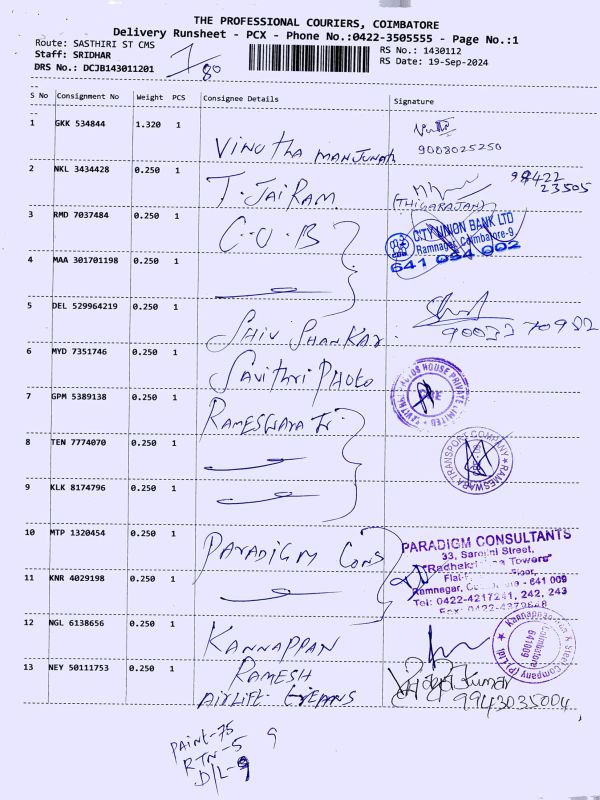 THE PROFESSIONAL COURIERS, COIMBATORE
Delivery Runsheet - PCX - Phone No.:0422-3505555 - Page No.:1
Route: SASTHIRI ST CMS RS No.: 1430112
Staff: SRIDHAR RS Date: 19-Sep-2024
DRS No.: DCJB143011201 1/80
S No Consignment No Weight PCS Consignee Details Signature
1 GKK 534844 1.320 1 VINUTHA MANJUNATH 9008025250
2 NKL 3434428 0.250 1 T. JAIRAM (THIGARAJAN) 98422 23505
3 RMD 7037484 0.250 1 C.U.B CITY UNION BANK LTD
Ramnagar, Coimbatore-9.
641 054 002
4 MAA 301701198 0.250 1
5 DEL 529964219 0.250 1 SHIV SHANKAR
6 MYD 7351746 0.250 1 SAVITHRI PHOTO HOUSE PRIVATE LIMITED
7 GPM 5389138 0.250 1 RAMESWARA Tr.
8 TEN 7774070 0.250 1 RAMESWARA TRANSPORT COMPANY
9 KLK 8174796 0.250 1
10 MTP 1320454 0.250 1 PARADIGM CONS PARADIGM CONSULTANTS
33, Sarojini Street,
Towers"
Floor,
11 KNR 4029198 0.250 1 Ramnagar, - 641 009
Tel: 0422-4217241, 242, 243
Fax: 0422-
12 NGL 6138656 0.250 1 KANNAPPAN Kannappan Iron & Steel Company (P) Ltd
Coimbatore
641009
13 NEY 50111753 0.250 1 RAMESH
AIRLIFT 9943035004
PAINT-75 9
RTN-5
D/L-9